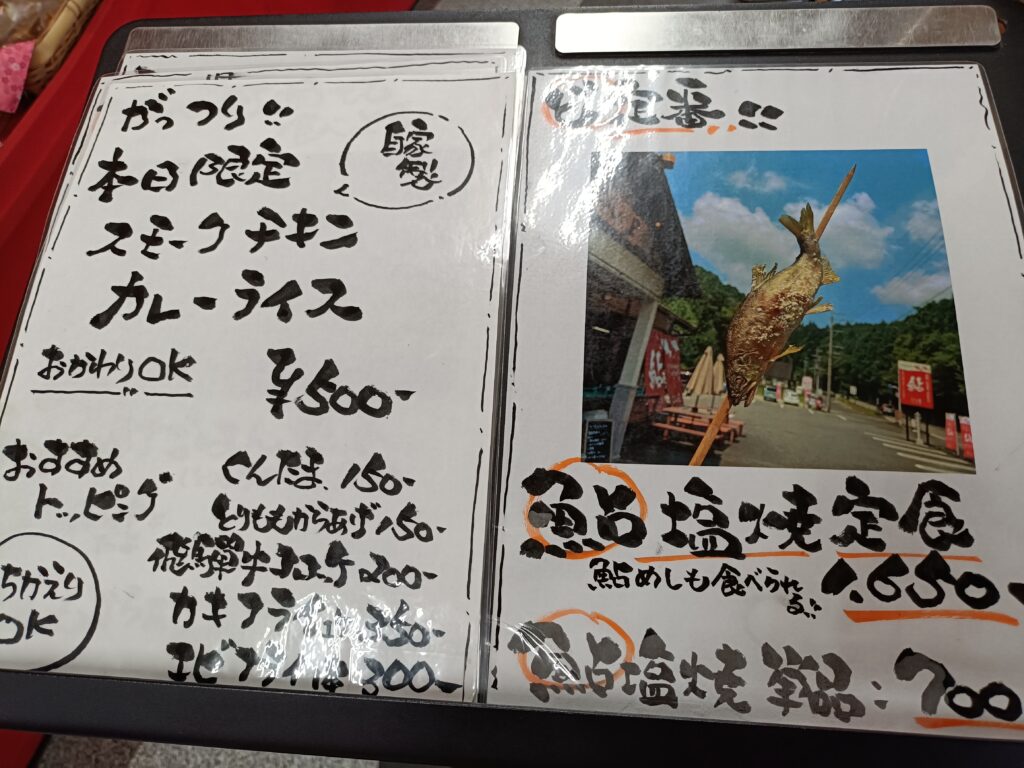 がっつり!!
自家製
本日限定
スモークチキン
カレーライス
おかわりOK
¥500-
おすすめ
トッピング
くんたま 150-
とりももからあげ 150-
飛騨牛コロッケ 200-
カキフライ 350-
エビフライ 300-
ちかえり
OK
定番!!
鮎
鮎塩焼定食
鮎めしも食べられる!!
1,650-
鮎塩焼単品:700